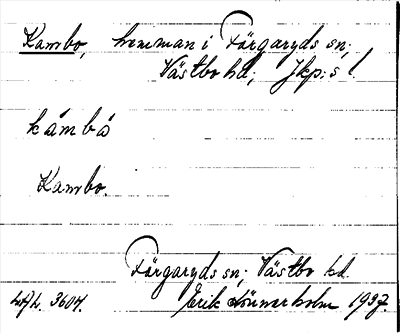 Kambo, hemman i Färgaryds sn;
Västbo hd; Jkp:s l.
kámbó
Kambo.
Färgaryds sn; Västbo hd.
3604. Erik Lönnerholm 1937.